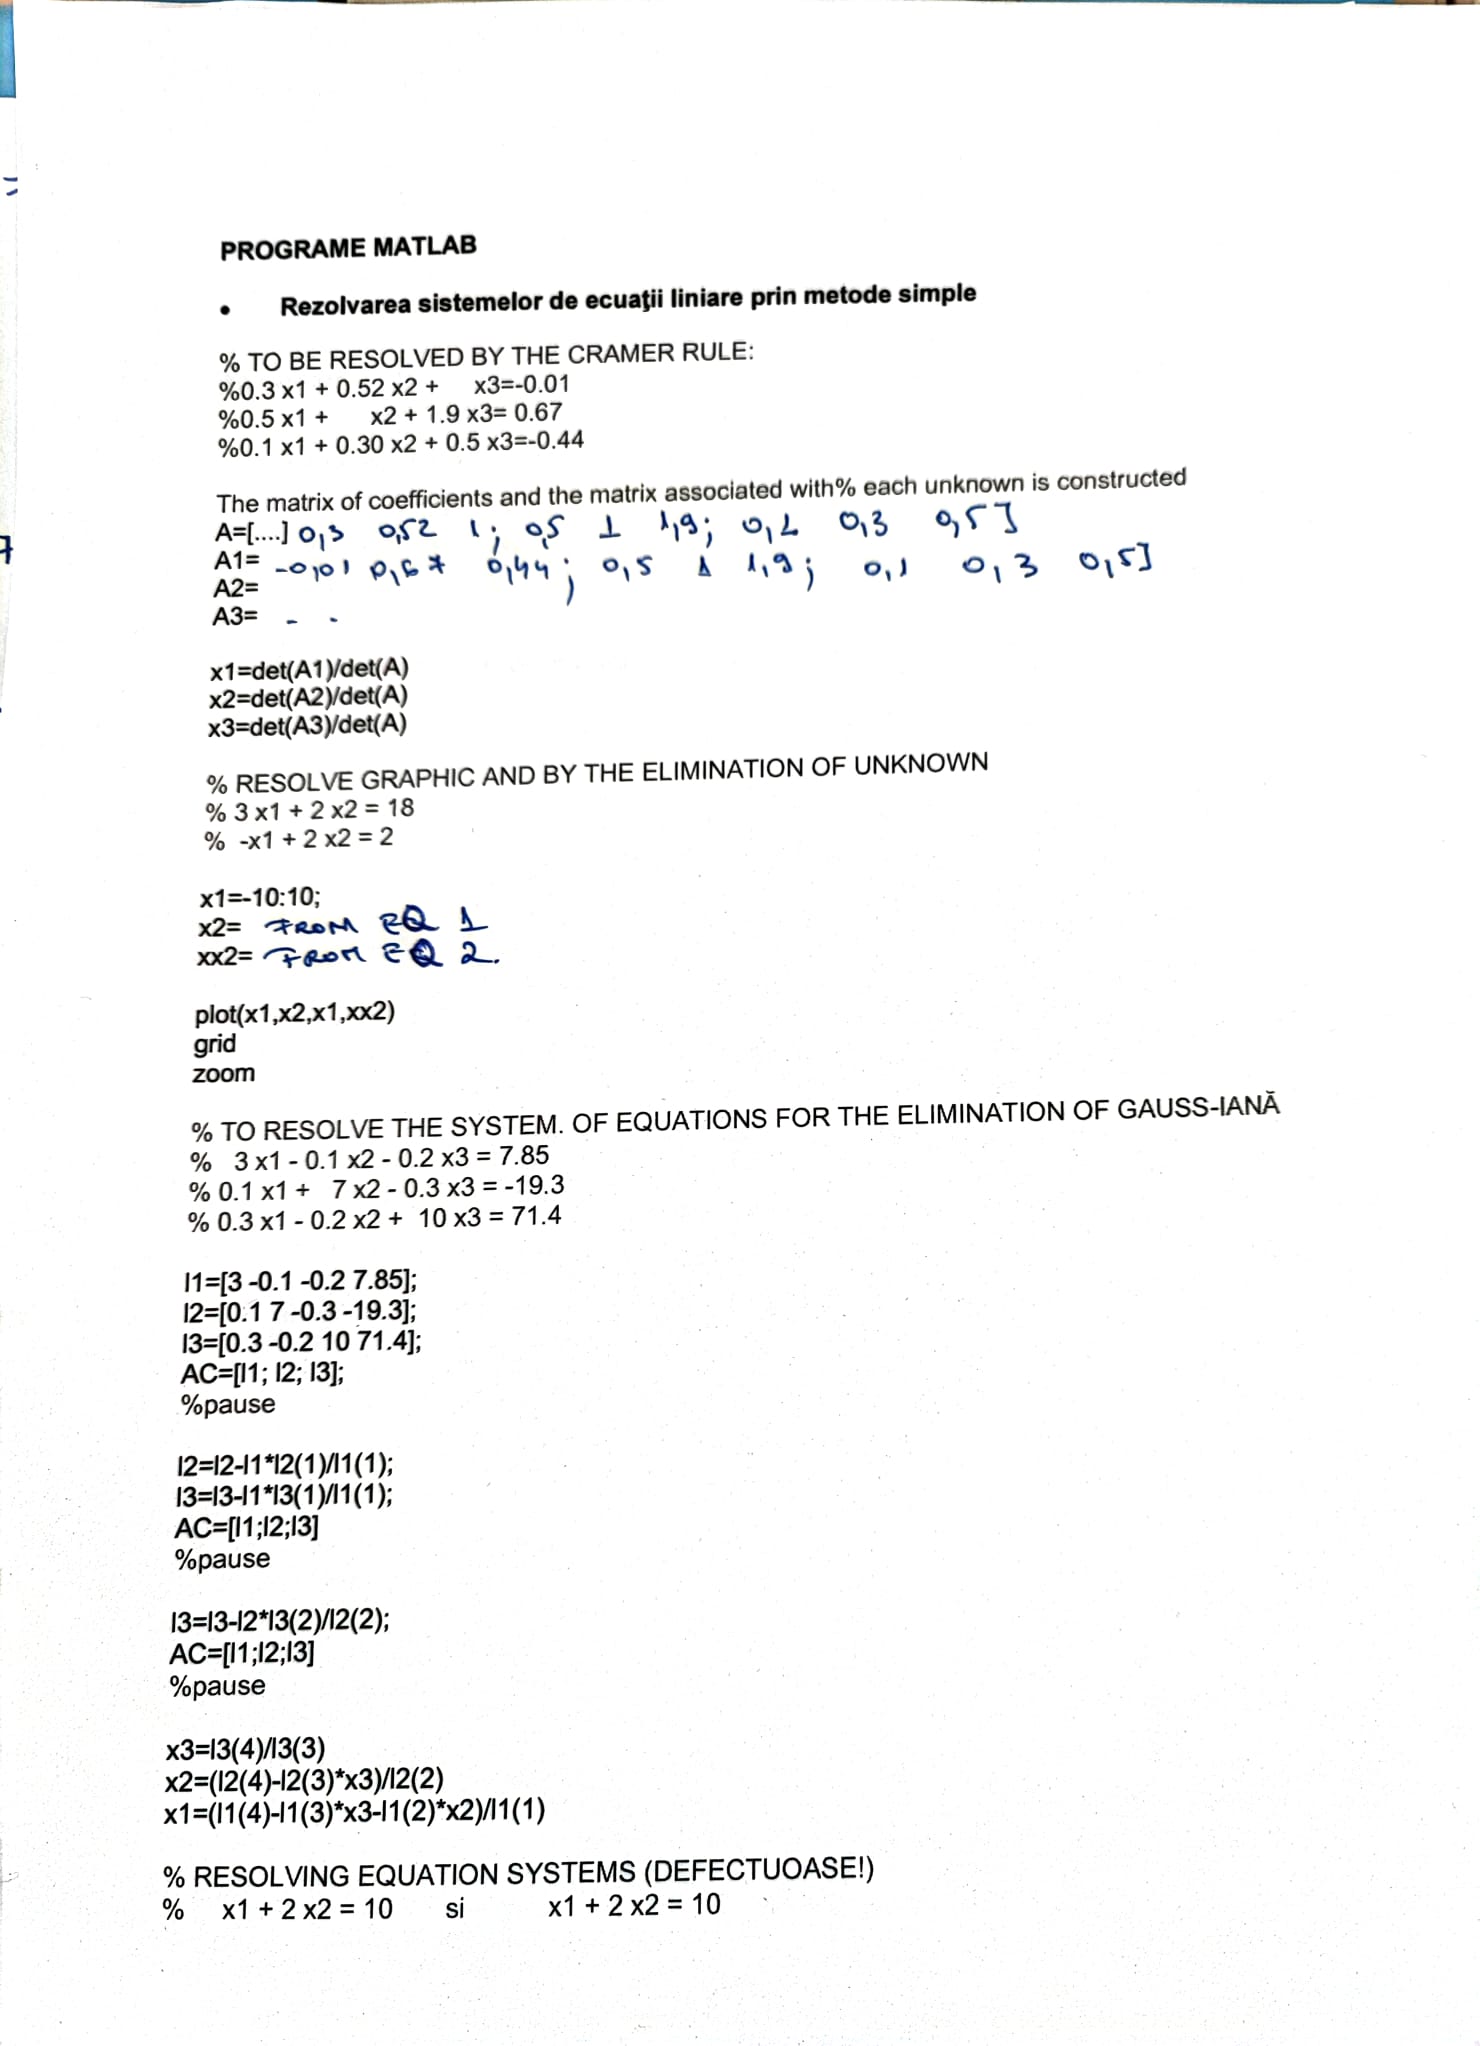 PROGRAME MATLAB
• Rezolvarea sistemelor de ecuaţii liniare prin metode simple
% TO BE RESOLVED BY THE CRAMER RULE:
%0.3 x1 + 0.52 x2 + x3=-0.01
%0.5 x1 + x2 + 1.9 x3= 0.67
%0.1 x1 + 0.30 x2 + 0.5 x3=-0.44
The matrix of coefficients and the matrix associated with% each unknown is constructed
A=[....] 0,3 0,52 1; 0,5 1 1,9; 0,1 0,3 0,5]
A1= -0,01 0,67 0,44; 0,5 1 1,9; 0,1 0,3 0,5]
A2=
A3= - -
x1=det(A1)/det(A)
x2=det(A2)/det(A)
x3=det(A3)/det(A)
% RESOLVE GRAPHIC AND BY THE ELIMINATION OF UNKNOWN
% 3 x1 + 2 x2 = 18
% -x1 + 2 x2 = 2
x1=-10:10;
x2= FROM EQ 1
xx2= FROM EQ 2.
plot(x1,x2,x1,xx2)
grid
zoom
% TO RESOLVE THE SYSTEM. OF EQUATIONS FOR THE ELIMINATION OF GAUSS-IANĂ
% 3 x1 - 0.1 x2 - 0.2 x3 = 7.85
% 0.1 x1 + 7 x2 - 0.3 x3 = -19.3
% 0.3 x1 - 0.2 x2 + 10 x3 = 71.4
l1=[3 -0.1 -0.2 7.85];
l2=[0.1 7 -0.3 -19.3];
l3=[0.3 -0.2 10 71.4];
AC=[l1; l2; l3];
%pause
l2=l2-l1*l2(1)/l1(1);
l3=l3-l1*l3(1)/l1(1);
AC=[l1;l2;l3]
%pause
l3=l3-l2*l3(2)/l2(2);
AC=[l1;l2;l3]
%pause
x3=l3(4)/l3(3)
x2=(l2(4)-l2(3)*x3)/l2(2)
x1=(l1(4)-l1(3)*x3-l1(2)*x2)/l1(1)
% RESOLVING EQUATION SYSTEMS (DEFECTUOASE!)
% x1 + 2 x2 = 10 si x1 + 2 x2 = 10